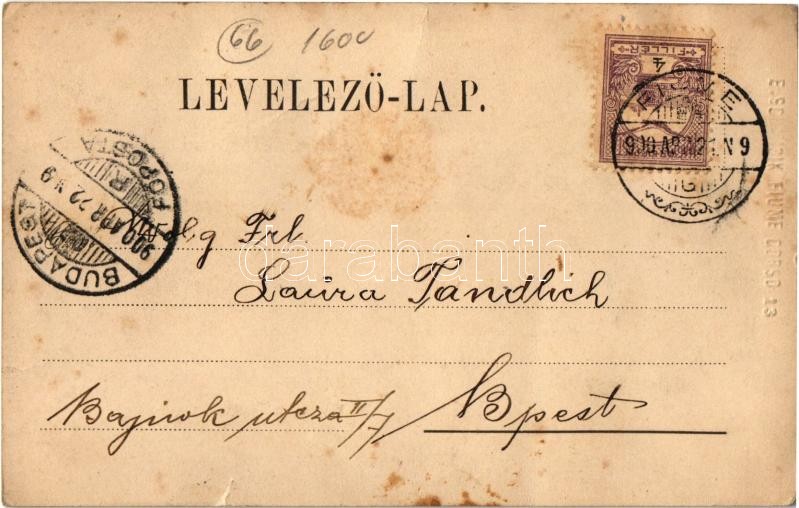 66 1600
FILLÉR
4
LEVELEZŐ-LAP.
FIUME
900 APR 21 N 9
G
BUDAPEST
900 APR 22 N 9
FŐPOSTA
FIUME CORSO 13
Frl
Laura Tandlich
Bajnok utcza II/7 Bpest
darabanth